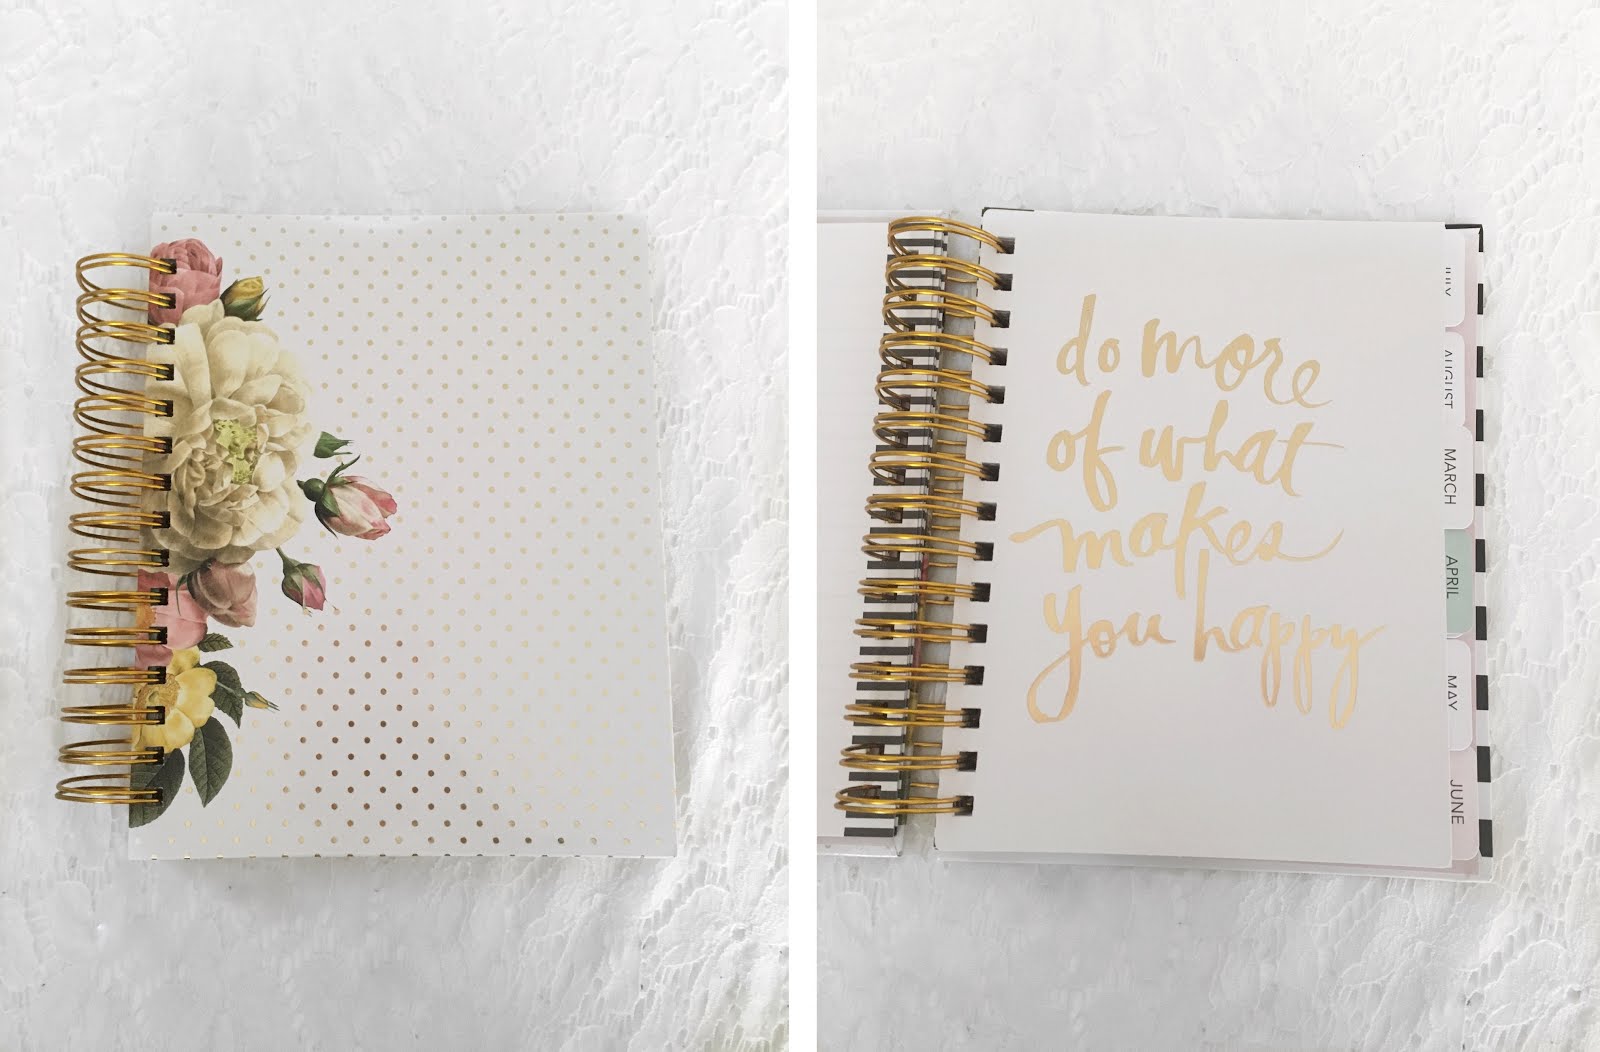 do more
of what
makes
you happy
JULY
AUGUST
MARCH
APRIL
MAY
JUNE